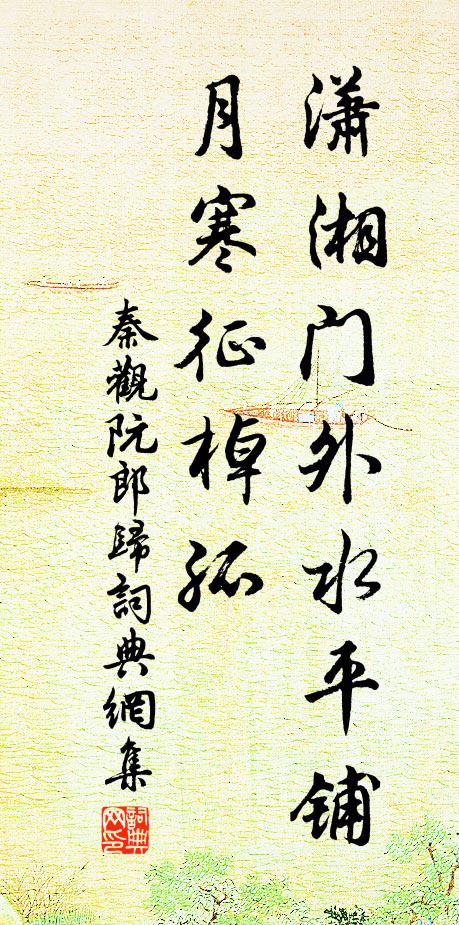 潇湘门外水平铺
月寒征棹孤
秦觀阮郎歸詞典網集
詞典網印